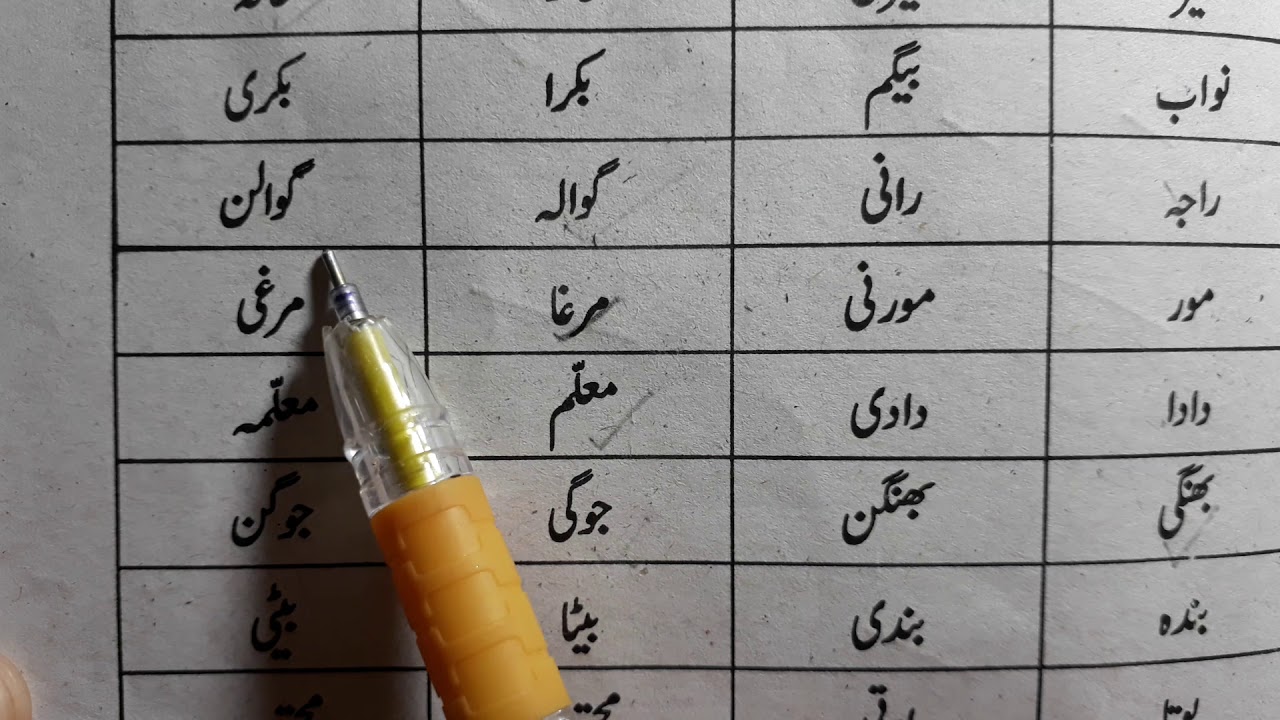 نواب بیگم بکرا بکری
راجہ رانی گوالہ گوالن
مور مورنی مرغا مرغی
دادا دادی معلّم معلّمہ
بھنگی بھنگن جوگی جوگن
بندہ بندی بیٹا بیٹی